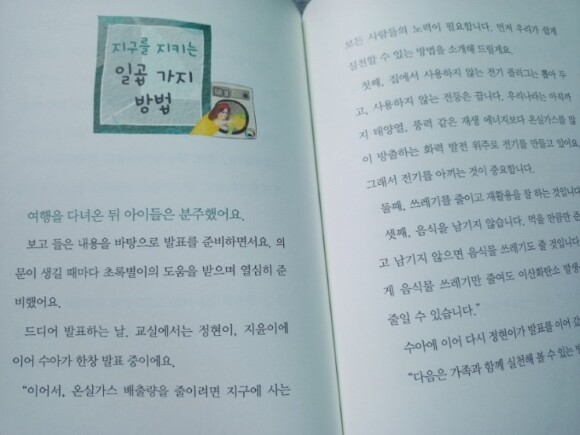 지구를 지키는
일곱 가지
방법
여행을 다녀온 뒤 아이들은 분주했어요.
보고 들은 내용을 바탕으로 발표를 준비하면서요. 의
문이 생길 때마다 초록별이의 도움을 받으며 열심히 준
비했어요.
드디어 발표하는 날. 교실에서는 정현이, 지윤이에
이어 수아가 한창 발표 중이에요.
"이어서, 온실가스 배출량을 줄이려면 지구에 사는
모든 사람들의 노력이 필요합니다. 먼저 우리가 쉽게
실천할 수 있는 방법을 소개해 드릴게요.
첫째, 집에서 사용하지 않는 전기 플러그는 뽑아 두
고, 사용하지 않는 전등은 끕니다. 우리나라는 아직까
지 태양열, 풍력 같은 재생 에너지보다 온실가스를 많
이 방출하는 화력 발전 위주로 전기를 만들고 있어요.
그래서 전기를 아끼는 것이 중요합니다.
둘째, 쓰레기를 줄이고 재활용을 잘 하는 것입니다
셋째, 음식을 남기지 않습니다. 먹을 만큼만
고 남기지 않으면 음식물 쓰레기도 줄 것입니다
게 음식물 쓰레기만 줄여도 이산화탄소 발생
줄일 수 있습니다."
수아에 이어 다시 정현이가 발표를 이어
"다음은 가족과 함께 실천해 볼 수 있는